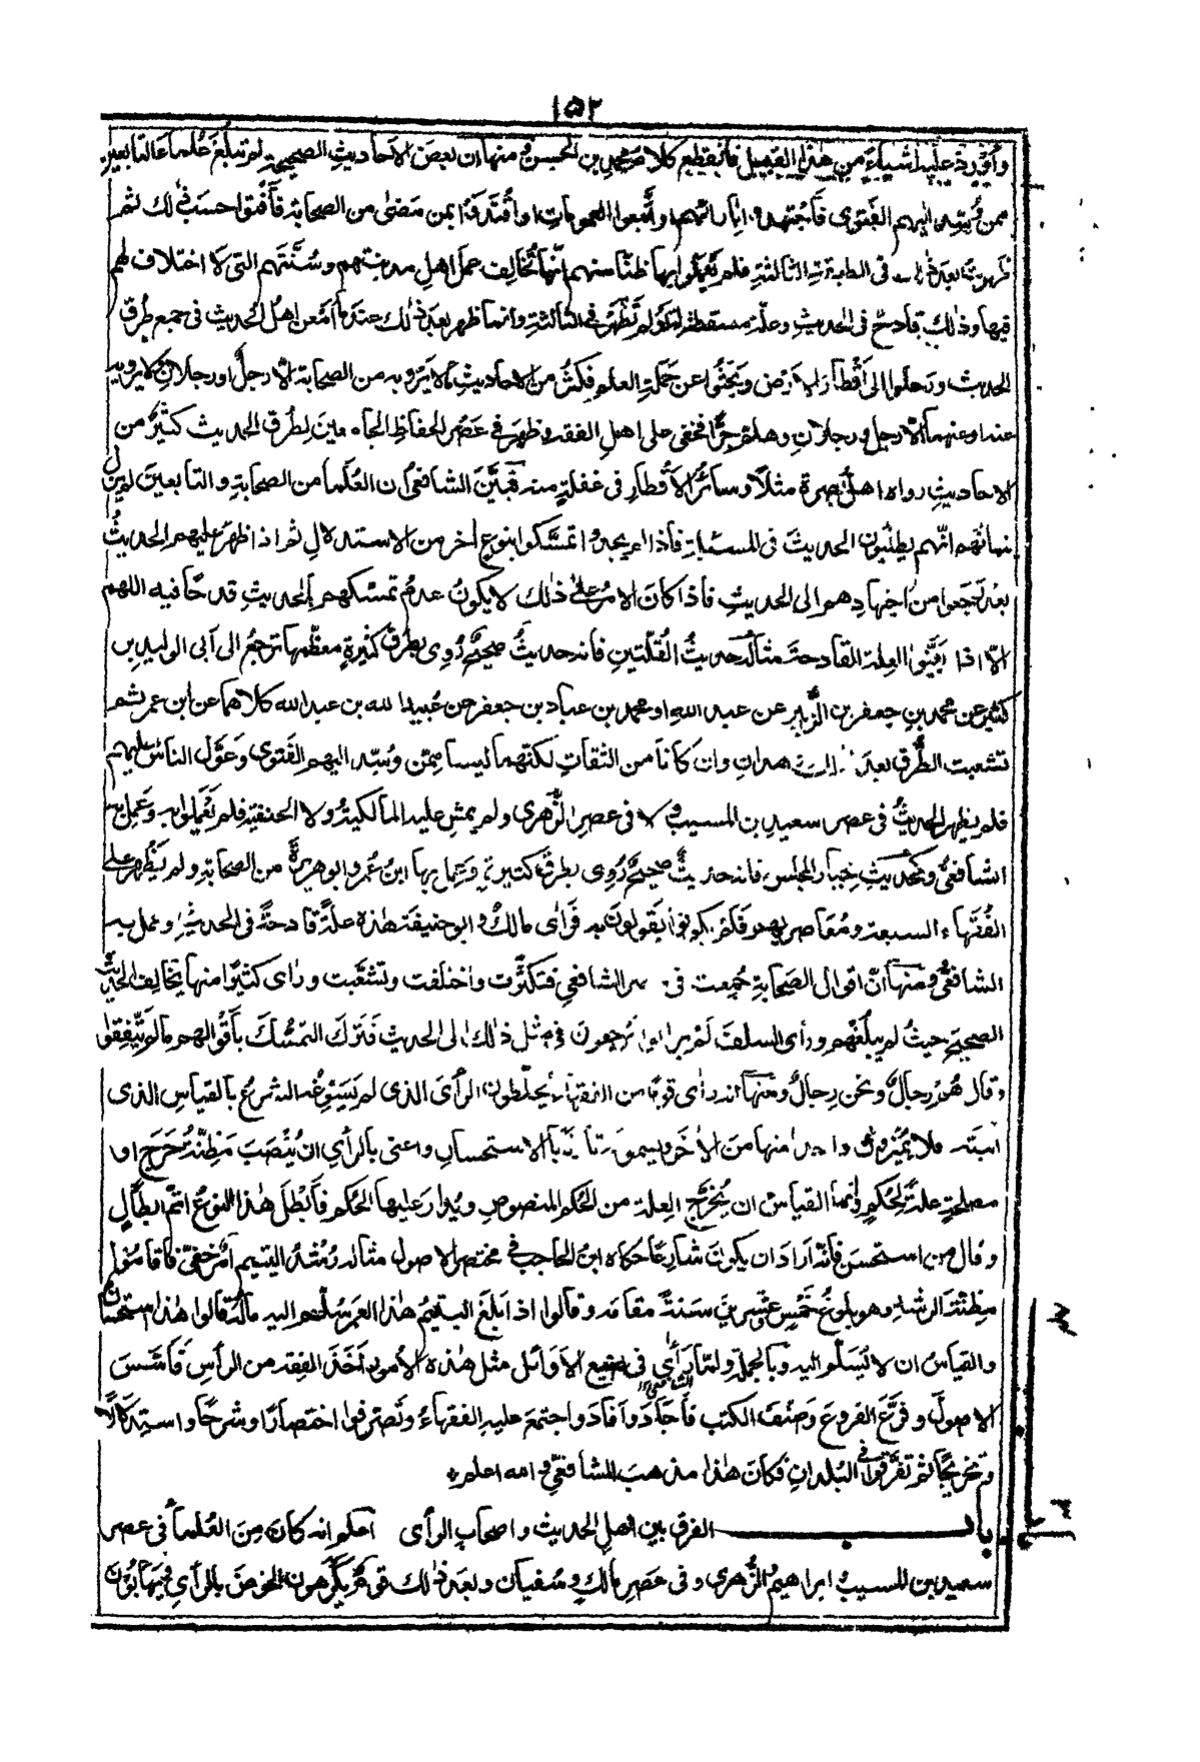 ١٥٢
وأَوْرَدَ عليه اشياءَ من هٰذا القبيل فانقطع كلام محمدِ بن الحسن ومنها ان بعضَ الاَحاديثِ الصحيحة لم تبلغ علماءَ التابعين
ممن وُسِّد اليهم الفَتوى فاجتهدوا بآرائهم واتَّبعوا العمومات او اقْتَدَوا بمن مَضىٰ من الصحابة فاَفْتوا حسبَ ذٰلك ثم
ظهرت بعد ذٰلك فى الطبقةِ الثالثةِ فلم يَعْملوا بها ظنًّا منهم انّها تُخَالِف عملَ اهلِ مدينتهم وسُنَّتَهم التى لا اختلاف لهم
فيها وذٰلك قادحٌ فى الحديثِ وعلّة مسقطة له او لم تَظْهَرْ فى الثالثةِ وانما ظهر بعد ذٰلك عند ما اَمْعن اهلُ الحديث فى جميع طُرُق
الحديث ورَحلوا الى اَقْطارِ الاَرْض وبَحَثُوا عن حَمَلةِ العلم فكثُر من الاحاديثِ ما لا يَرْوِيه من الصحابة الاّ رجلٌ او رجلانِ ولا يرويه
عنه او عنهما الا رجل او رجلان وهلم جرًّا فخفى على اهلِ الفقه وظهَرَ فى عَصْرِ الحفاظِ الجامعين لطُرُق الحديث كثيرٌ من
الاحاديثِ رواه اهل البصرة مثلاً وسائرُ الاَقْطارِ فى غفلةٍ منه فبَيَّنَ الشافعىُّ ان العُلَماءَ من الصحابةِ والتابعينَ لم يزل
شانُهم انّهم يطلبون الحديثَ فى المسئلةِ فاذا لم يجدوا تمسَّكوا بنوعٍ اٰخر من الاستدلالِ ثم اذا ظهَرَ عليهم الحديثُ
بعدُ رَجَعوا من اجتهادِهم الى الحديثِ فاذا كانَ الامرُ علىٰ ذٰلك لا يكونُ عدمُ تمسّكهم بالحديثِ قدحًا فيه اللهم
الاّ اذا بَيَّنُوا العِلةَ القادحةَ مثالُه حديثُ القُلّتينِ فانه حديثٌ صحيحٌ رُوِى بطُرُقٍ كثيرةٍ معظَمها ترجعُ الى اَبى الوليدِ بن
كثير عن محمدِ بنِ جعفر بن الزُّبير عن عبد اللهِ او محمد بن عباد بن جعفر عن عُبيد الله بن عبد الله كلاهما عن ابن عمر ثم
تشعبت الطُّرُق بعد ذٰلك وهذان وان كانَا من الثقاتِ لكنّهما ليسا ممن وُسِّد اليهم الفَتوى وعَوَّل الناسُ عليهم
فلم يظهر الحديثُ فى عصر سعيدِ بن المسيب ولا فى عصرِ الزُّهرى ولم يمشِ عليه المالكيةُ ولا الحنفية فلم يَعْمَلوا به وعَمِل به
الشافعىُّ وكحديثِ خيار المجلس فانه حديثٌ صحيحٌ رُوِى بطرقٍ كثيرةٍ وعَمِل بها ابنُ عُمَر وابو هريرةَ من الصحابةِ ولم يَظْهر على
الفُقَهاء السبعةِ ومُعاصريهم فلم يكونوا يَقولون به فرَأى مالكٌ وابو حنيفةَ هٰذه علةً قادحةً فى الحديثِ وعمل به
الشافعىُّ ومنها اَنَّ اقوالَ الصحابةِ جُمِعت فى عصر الشافعى فتكثَّرت واختلفت وتشعَّبت ورأى كثيرًا منها يُخالِف الحديثَ
الصحيحَ حيثُ لم يَبْلُغْهم ورأى السلفَ لم يزالوا يَرجِعون فى مثل ذٰلك الى الحديث فتَرَكَ التمسُّكَ باَقْوالِهم ما لم يَتَّفِقوا
وقال هُمْ رجالٌ ونحن رجالٌ ومنها انه رأى قومًا من الفقهاءِ يخلطون الرأىَ الذى لم يُسوِّغْه الشرعُ بالقياسِ الذى
اَثبته فلا يُمَيِّزون واحدًا منها من الاٰخَرِ ويسمونه تارةً بالاستحسانِ واعنى بالرأىِ ان يُنْصَبَ مَظِنّةُ حَرَجٍ او
مصلحةٍ علةً لحُكمٍ وانما القياسُ ان يُخَرَّج العِلة من الحُكم المنصوصِ ويُدار عليها الحُكم فاَبْطَلَ هٰذا النوعَ اتمَّ ابطالٍ
وقال من استحسن فانّه اَرادَ ان يكونَ شارعًا حكاه ابنُ الحاجب فى مختصر الاصول مثاله رُشْدُ اليتيم اَمْرٌ خفىٌّ فاقاموا
مظنّةَ الرشدِ وهو بلوغُ خَمْسٍ وعشرينَ سَنةً مقامَه وقالوا اذا بلَغ اليتيمُ هٰذا العمرَ سُلِّم اليه مالُه قالوا هٰذا استحسانٌ
والقياسُ ان لا يُسَلَّم اليه وبالجملةِ لمّا رَأىٰ فى صنيع الاَوائل مثل هٰذه الاُمورِ اَخَذَ الفِقه من الرأسِ فاَسَّسَ
الشافعى
الاصولَ وفرَّعَ الفروعَ وصنّفَ الكتب فاَجادَ واَفادَ واجتمعَ عليه الفقهاءُ وتَصَرّفوا اختصارًا وشرحًا واستدلالاً
وتخريجًا ثم تفرّقوا فى البُلدانِ فكانَ هٰذا مذهبَ للشافعىِّ والله اعلم
باب الفرق بين اهل الحديث واصحاب الرأى اعلم انه كانَ مِنَ العُلماءِ فى عصر
سعيد بن المسيب وابراهيم والزُّهرى وفى عَصرِ مالكٍ وسُفيان وبعد ذٰلك قومٌ يَكْرَهون الخوضَ بالرأىِ ويَهابُون